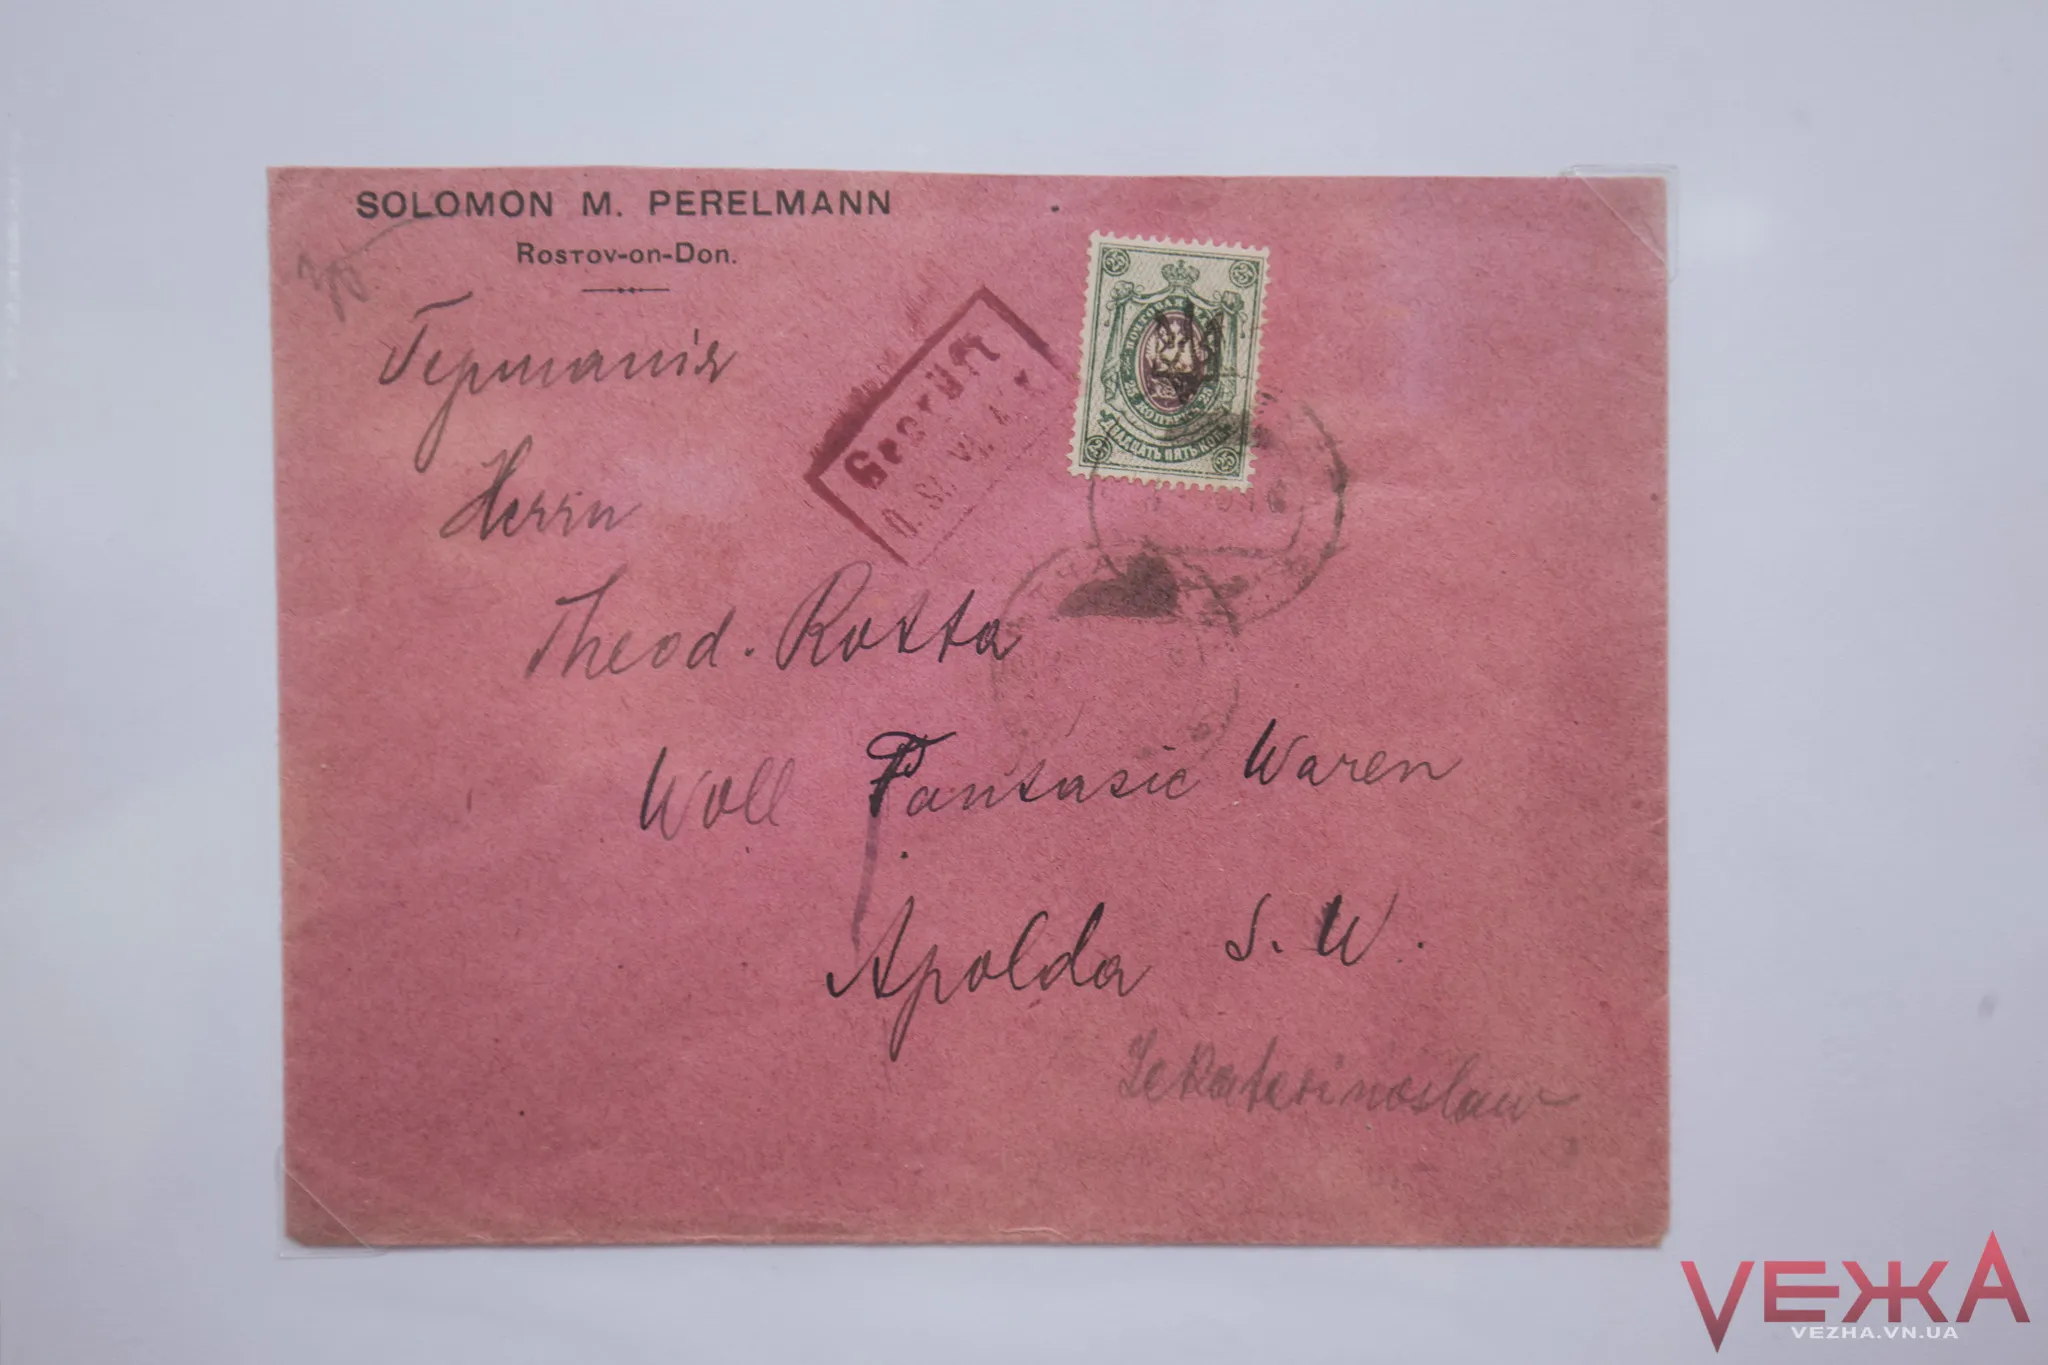 SOLOMON M. PERELMANN
Rostov-on-Don.
Германія
Herrn
Theod. Rotta
Woll Fantasie Waren
Apolda S. W.
Jekaterinoslaw
Geprüft
25 25
25 КОПѢЕКЪ 25
ДВАДЦАТЬ ПЯТЬ КОП.
25 25
VЕЖА
VEZHA.VN.UA